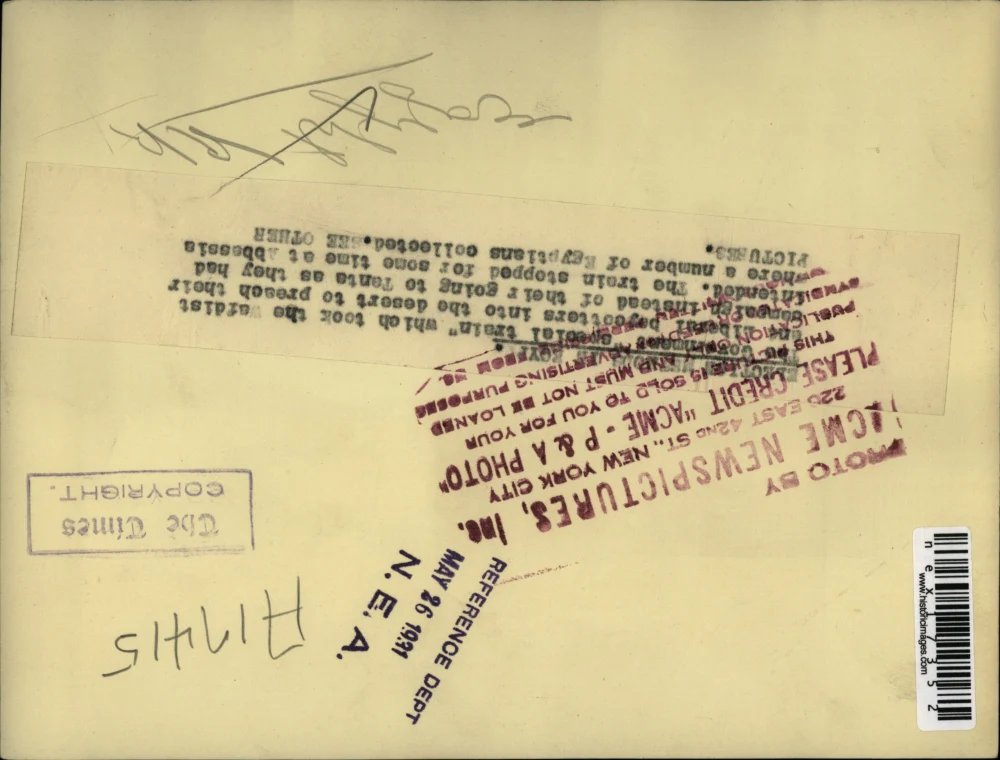 A17415
The Times
COPYRIGHT.
REFERENCE DEPT
MAY 26 1931
N. E. A.
PHOTO BY
ACME NEWSPICTURES, Inc.
220 EAST 42ND ST., NEW YORK CITY
PLEASE CREDIT "ACME - P & A PHOTO"
THIS PICTURE IS SOLD TO YOU FOR YOUR
PUBLICATION ONLY AND MUST NOT BE LOANED
ADVERTISING PURPOSES
FROM US.
ELECTIONS EGYPT.
The Government "special train" which took the Wafdist
and Liberal boycotters into the desert to preach their
campaign instead of their going to Tanta as they had
intended. The train stopped for some time at Abbassia
where a number of Egyptians collected. SEE OTHER
PICTURES.
Egypt
www.historicimages.com
nex17352